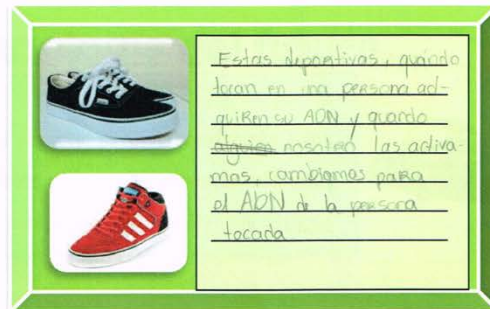 Estas deportivas, quando
tocan en una persona ad-
quiren su ADN y quando
alguien nosotros las activa-
mos, cambiamos para
el ADN de la persona
tocada